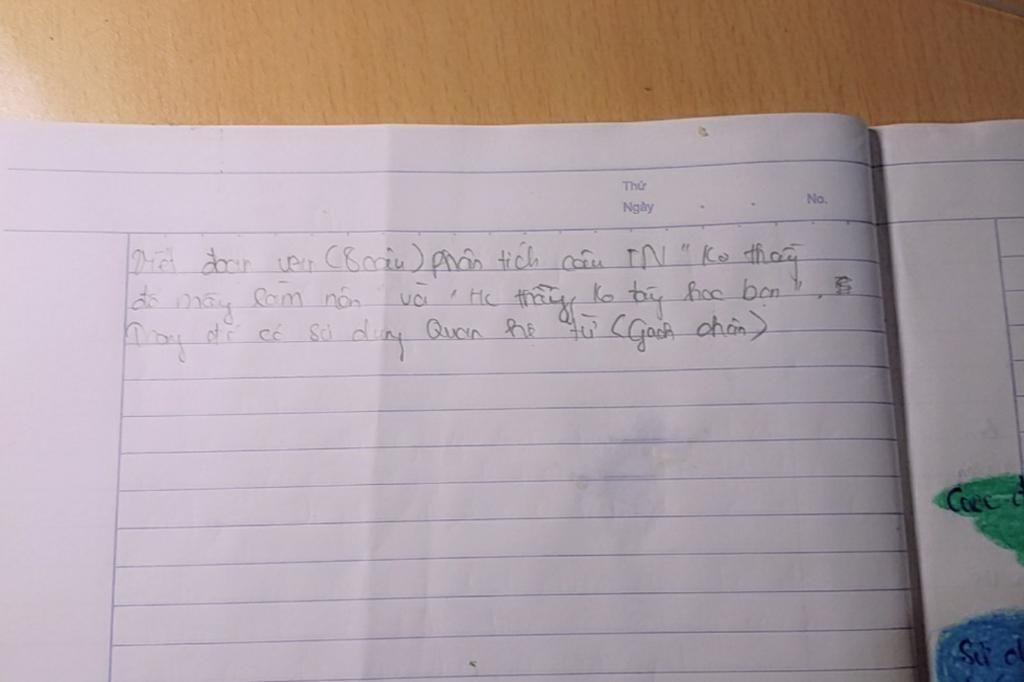 Thứ
Ngày . . No.
Viết đoạn văn (8 câu) phân tích câu TN "Ko thầy
đố mày làm nên" và "Hc thầy, ko tày học bạn".
Trong đó có sử dụng Quan hệ từ (Gạch chân)
Các
Sử d